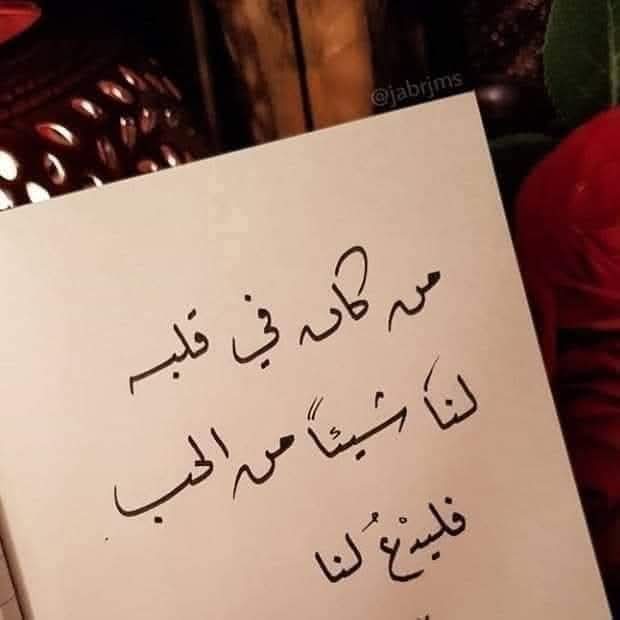 @jabrjms
من كان في قلبه
لنا شيئاً من الحب
فليدْعُ لنا